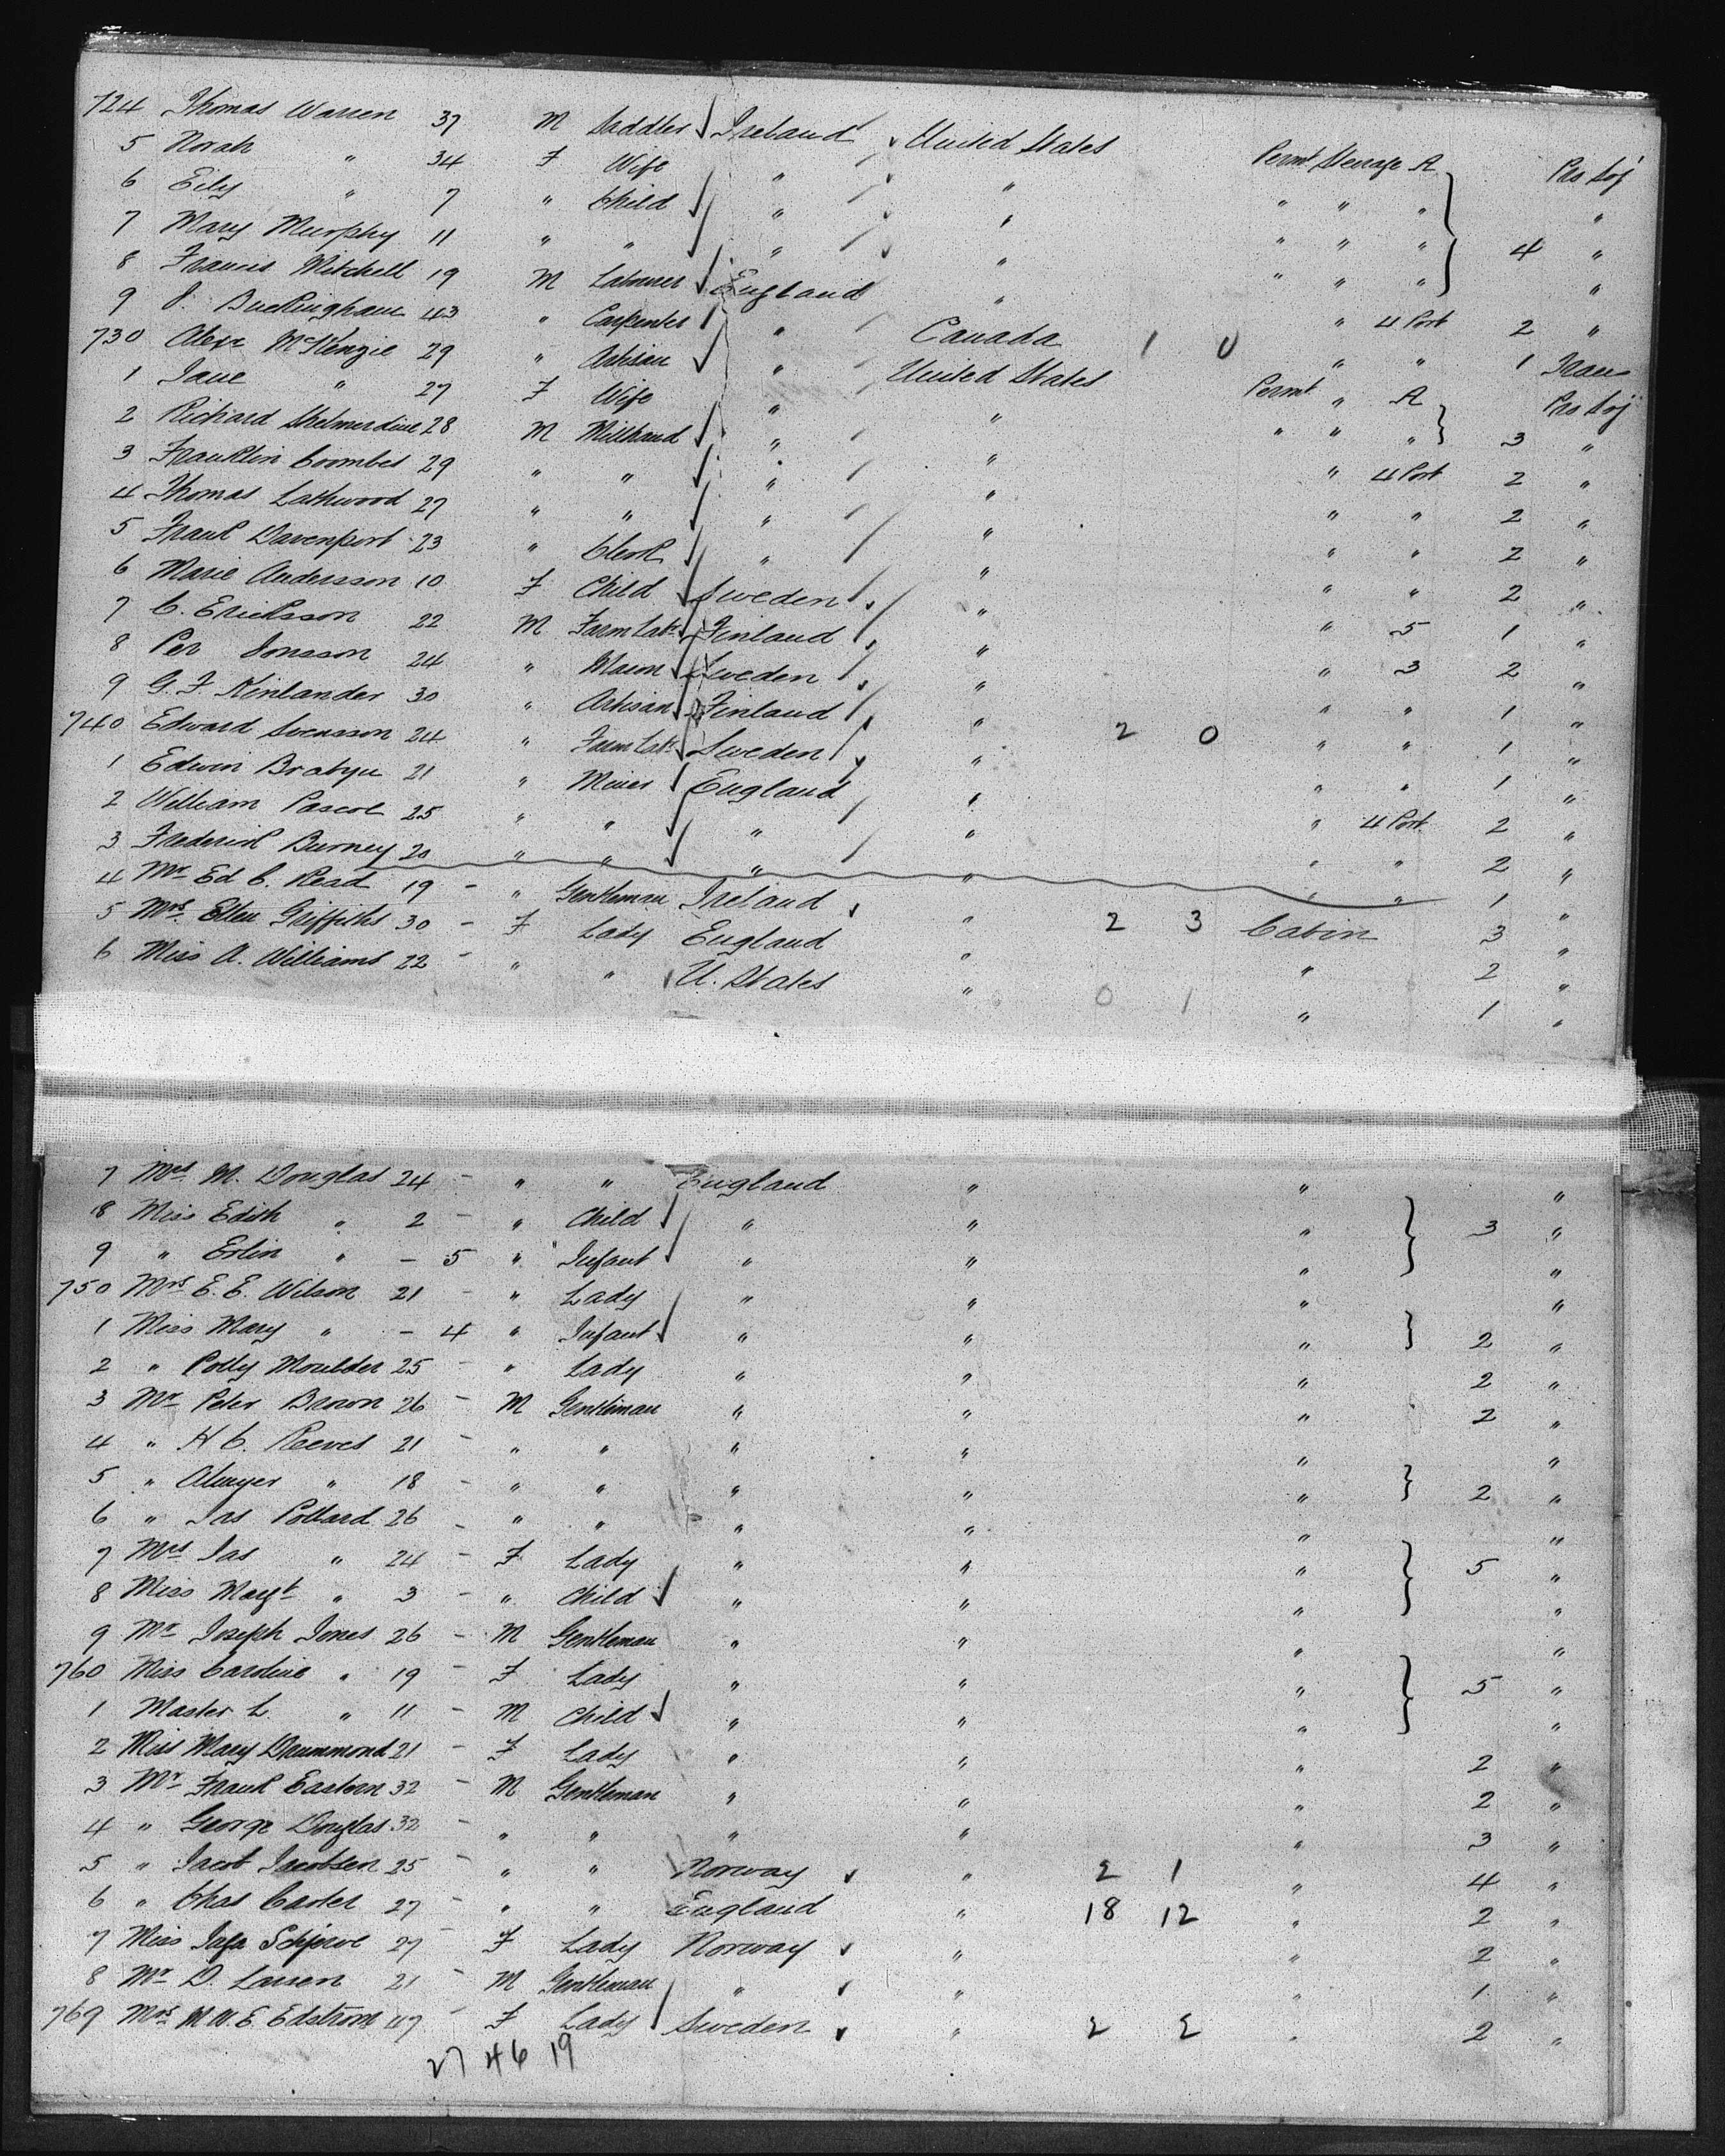 724 Thomas Warren 37 M Saddler Ireland United States Permt Steerage A Pro Soj
5 Norah " 34 F Wife " " " " " "
6 Eily " 7 " Child " " " " " 4 "
7 Mary Murphy 11 " " " " " " " "
8 Francis Mitchell 19 M Labourer England " " 4 Port 2 "
9 J. Buckingham 43 " Carpenter " Canada 1 0 " " 1 Trans
730 Alex McKenzie 29 " Artisan " United States Permt " A Pro Soj
1 Jane " 27 F Wife " " " " " 3 "
2 Richard Shelmerdine 28 M Millhand " " " 4 Port 2 "
3 Franklin Coombes 29 " " " " " " 2 "
4 Thomas Lathwood 27 " " " " " " 2 "
5 Frank Davenport 23 " Clerk " " " " 2 "
6 Marie Andersson 10 F Child Sweden " " 5 1 "
7 C. Ericksson 22 M Farm Labr Finland " " 3 2 "
8 Per Jonsson 24 " Mason Sweden " " " 1 "
9 G. F. Kinlander 30 " Artisan Finland " 2 0 " " 1 "
740 Edward Svensson 24 " Farm Labr Sweden " " " 1 "
1 Edwin Brabyn 21 " Miner England " " 4 Port 2 "
2 William Pascoe 25 " " " " " " 2 "
3 Frederick Burney 20 " " " " " " 1 "
4 Mr Ed C. Read 19 - " Gentleman Ireland " 2 3 Cabin 3 "
5 Mrs Ellen Griffiths 30 - F Lady England " " 2 "
6 Miss A. Williams 22 - " " U. States " 0 1 " 1 "
7 Mrs M. Douglas 24 - " " England " " "
8 Miss Edith " 2 - " Child " " " 3 "
9 " Erlin " - 5 " Infant " " " "
750 Mrs E. E. Wilson 21 - " Lady " " " "
1 Miss Mary " - 4 " Infant " " " 2 "
2 " Polly Moulder 25 - " Lady " " " 2 "
3 Mr Peter Brown 26 - M Gentleman " " " 2 "
4 " H C. Reeves 21 - " " " " " "
5 " " 18 - " " " " " 2 "
6 " Jas Pollard 26 - " " " " " "
7 Mrs Jas " 24 - F Lady " " " 5 "
8 Miss Margt " 3 - " Child " " " "
9 Mr Joseph Jones 26 - M Gentleman " " " "
760 Miss Caroline " 19 - F Lady " " " 5 "
1 Master L. " 11 - M Child " " " "
2 Miss Mary Drummond 21 - F Lady " " " 2 "
3 Mr Frank Eastern 32 - M Gentleman " " " 2 "
4 " George Douglas 32 - " " " " " 3 "
5 " Jacob Jacobsen 25 - " " Norway " 2 1 " 4 "
6 " Chas Carter 27 - " " England " 18 12 " 2 "
7 Miss 27 - F Lady Norway " " 2 "
8 Mr D. Larsen 21 - M Gentleman " " " 1 "
769 Mrs M. W. E. Edstrom 47 - F Lady Sweden " 2 2 " 2 "
27 46 19